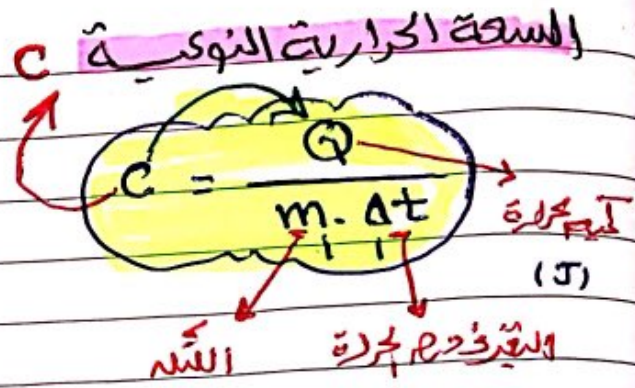 السعة الحرارية النوعية C
C = Q / m . Δt
كمية الحرارة
(J)
الكتله التغير في درجة الحرارة